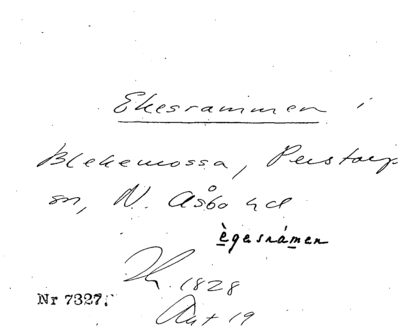 Ekesrammen i
Blekemossa, Perstorp
sn, N. Åsbo hd
ègasrámen
1828
Nr 7327.
19